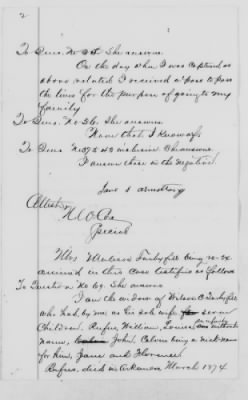 2
To Ques. No 35 She answers
On the day when I was captured as
above related I received a pass to pass
the lines for the purpose of going to my
family
To Ques. No 36. She answers.
None that I know of
To Ques No 37 & 43 inclusive She answers.
I answer these in the negative.
Jane S Armstrong
Attest
Special
Mrs Faubyfill being re-ex
amined in this Case testifies as follows
To Question No 69. She answers
I am the widow of Wilson C
who had by me as his sole wife seven
Children. Rufus, William, Louisa, an infant without
name, John, Calvin being a nick-name
for him, Jane and Florence
Rufus, died in Arkansas March 1874